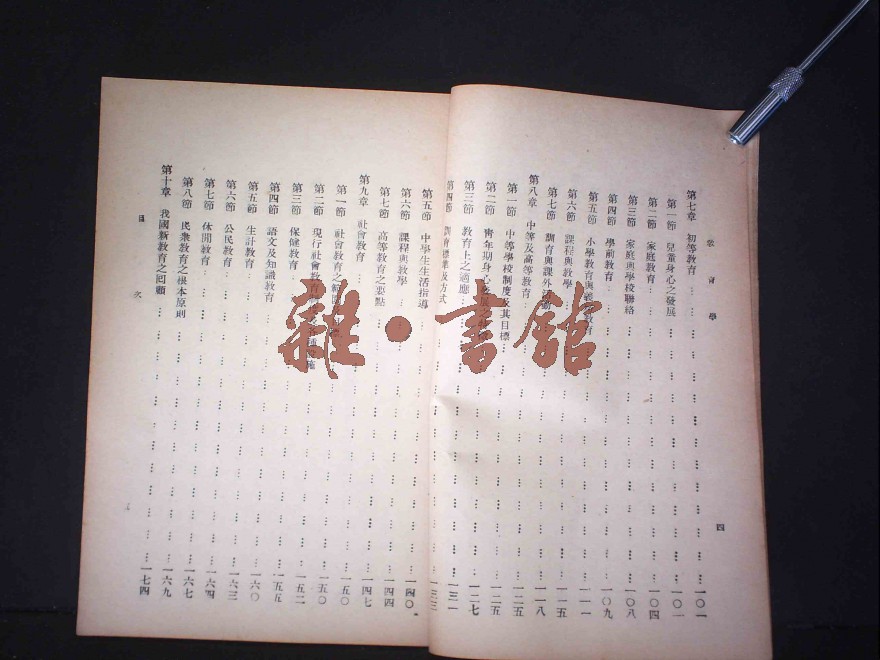 教育學
四
第七章　初等教育……一〇一
第一節　兒童身心之發展……一〇一
第二節　家庭教育……一〇四
第三節　家庭與學校聯絡……一〇八
第四節　學前教育……一〇九
第五節　小學教育與義務教育……一一一
第六節　課程與教學……一一五
第七節　訓育與課外活動……一一八
第八章　中等及高等教育……一二五
第一節　中等學校制度及其目標……一二五
第二節　青年期身心發展之特徵……一二五
第三節　教育上之適應……一二七
第四節　訓育標準及方式……一三一
第五節　中學生生活指導……一三三
第六節　課程與教學……一四〇
第七節　高等教育之要點……一四四
第九章　社會教育……一四七
第一節　社會教育之範圍……一五〇
第二節　現行社會教育……施……一五〇
第三節　保健教育……一五二
第四節　語文及知識教育……一五五
第五節　生計教育……一六〇
第六節　公民教育……一六三
第七節　休閒教育……一六四
第八節　民衆教育之根本原則……一六七
第十章　我國新教育之回顧……一六九
目次
一七四
雜·書館